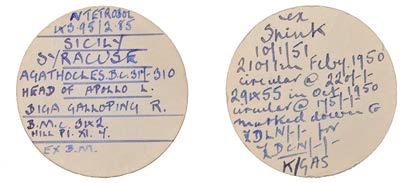 AV TETROBOL
SICILY
SYRACUSE
AGATHOCLES. B.C. 317-310
HEAD OF APOLLO L.
BIGA GALLOPING R.
B.M.C.
HILL Pl. XI. 4.
EX B.M.
ex
Spink
10/1/51
in Feby 1950
circular @ 220/-/-
29 x 55 in Oct 1950
circular @ 175/-/-
marked down to
LDLN/-/- for
LDCN/-/-
K/GAS